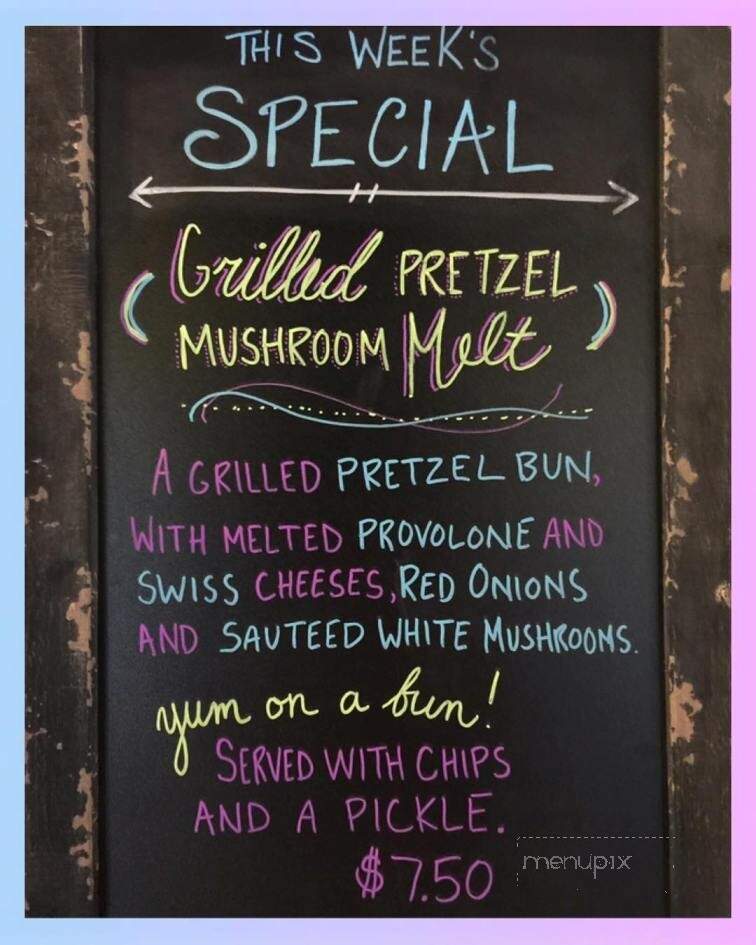 THIS WEEK'S
SPECIAL
Grilled PRETZEL
MUSHROOM Melt
A GRILLED PRETZEL BUN,
WITH MELTED PROVOLONE AND
SWISS CHEESES, RED ONIONS
AND SAUTEED WHITE MUSHROOMS.
yum on a bun!
SERVED WITH CHIPS
AND A PICKLE.
$7.50
menupix